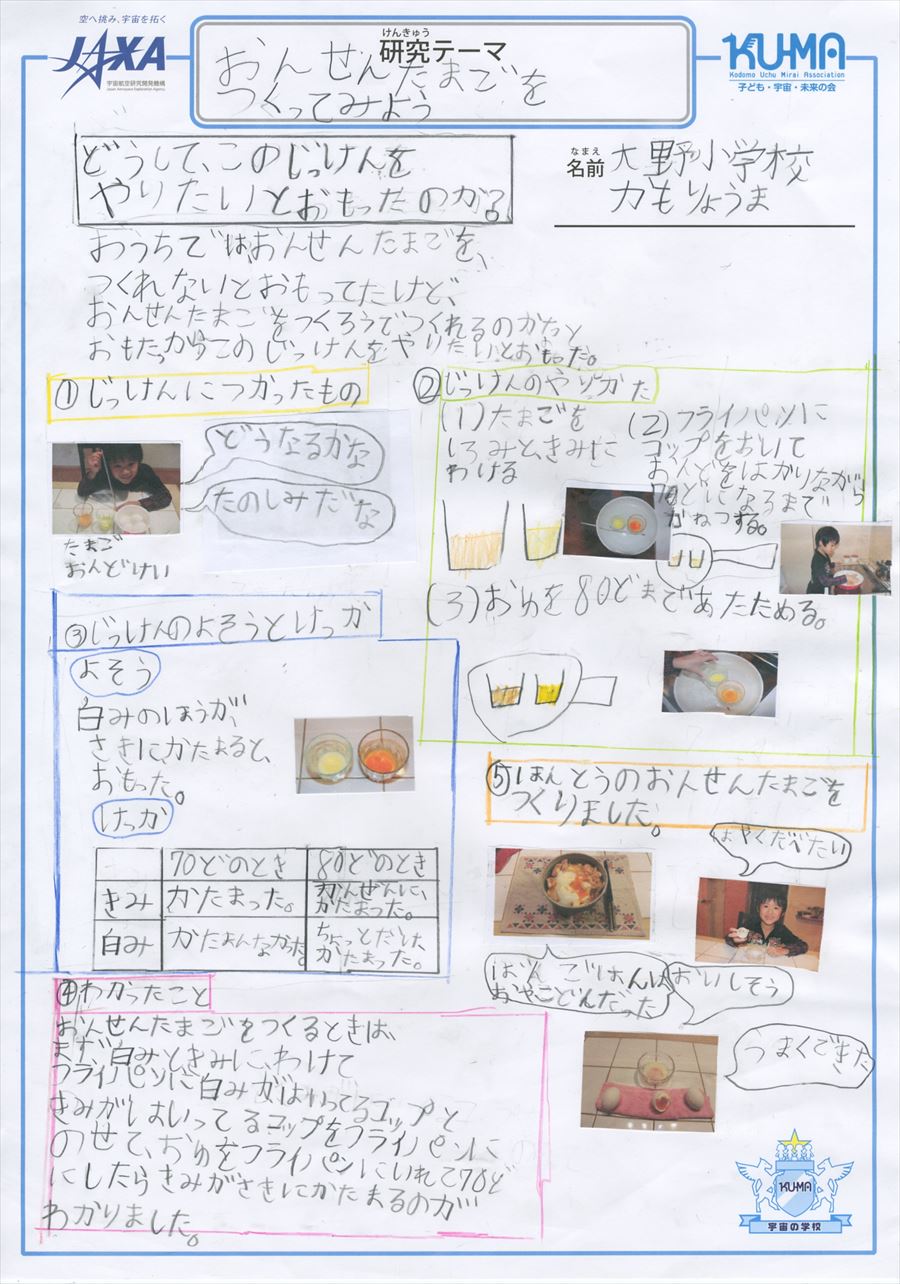 空へ挑み、宇宙を拓く
JAXA
宇宙航空研究開発機構
Japan Aerospace Exploration Agency
けんきゅう
研究テーマ
おんせんたまごを
つくってみよう
KUMA
Kodomo Uchu Mirai Association
子ども・宇宙・未来の会
どうして、このじっけんを
やりたいとおもったのか?
なまえ
名前
大野小学校
カもりょうま
おうちでは、おんせんたまごを、
つくれないとおもってたけど、
おんせんたまごをつくろうでつくれるのかなと
おもたっからこのじっけんをやりたいとおもった。
①じっけんにつかったもの
どうなるかな
たのしみだな
たまご
おんどけい
②じっけんのやりかた
(1)たまごを
しろみときみに
わける
(2)フライパンに
コップをおいて
おんどをはかりながら
70どになるまで
かねつする。
(3)おゆを80どまであたためる。
③じっけんのよそうとけっか
よそう
白みのほうが、
さきに、かたまると、
おもった。
けっか
70どのとき 80どのとき
きみ かたまった。 かんぜんに、かたまった。
白み かたまんなかった ちょっとだけ、かたまった。
④わかったこと
おんせんたまごをつくるときは、
まず白みときみに、わけて
フライパンに白みがはいってるコップと
きみがはいってるコップをフライパンに
のせて、おゆをフライパンにいれて70ど
にしたらきみがさきにかたまるのが
わかりました。
⑤ほんとうのおんせんたまごを
つくりました。
はやくたべたい
ばんごはんは
おやこどんだった
おいしそう
うまくできた
KUMA
宇宙の学校